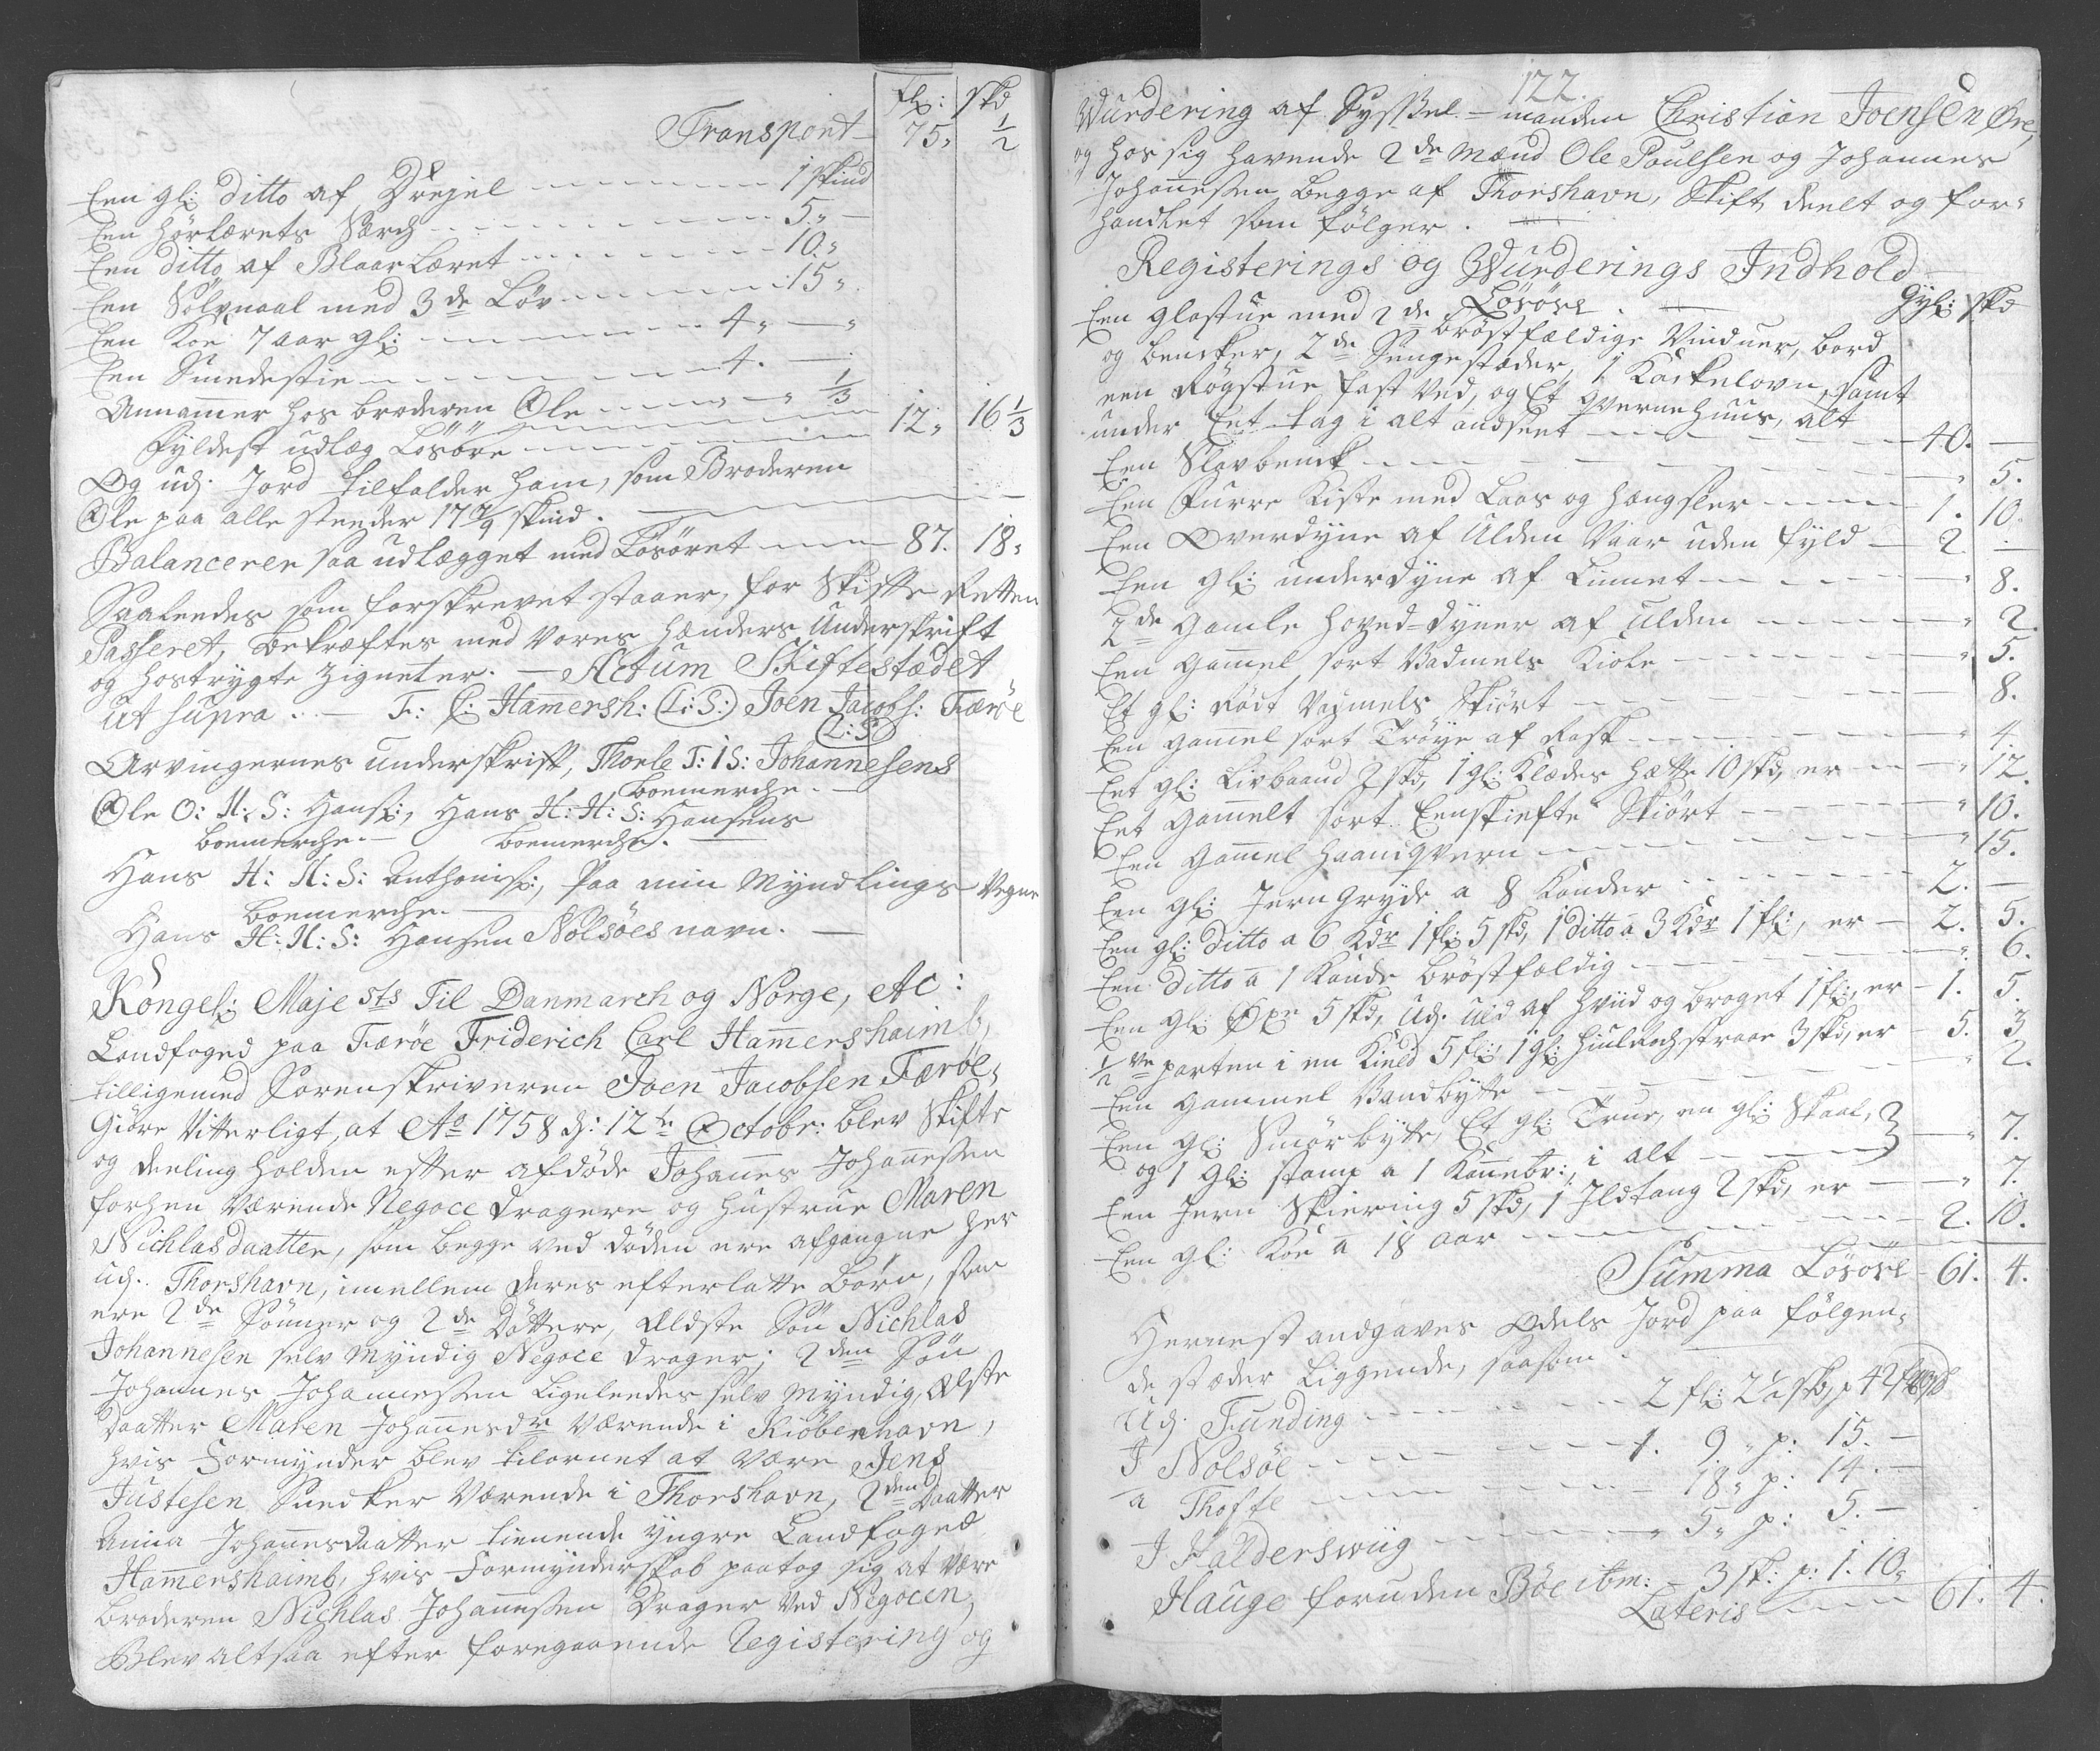 fl: skd
Transport 75. 1/2
Een gl: ditto af Drejel 1 skind
Een Hörlærets Særch 5.
Een ditto af Blaarlæret 10.
Een Sölvnaal med 3de Löv 15.
Een Koe 7 aar gl: 4.
Een Smedestie 4.
Annammer hos broderen Ole 1/3
Fyldest udlæg Losöre 12. 16 1/3
Og udj Jord tilfalder ham, som Broderen
Ole paa alle steder 17 7/9 skind.
Balancerer saa udlægget med Losöret 87. 18.
Saaledes som forskrevet staaer, for Skifte Retten
Passeret, bekræftes med vores hænders underskrift
og hostrygte Zigneter. — Actum Skiftestædet
ut supra. — F: C: Hamersh: (L:S:) Joen Jacobs: Færöe
(L:S)
Arvingernes underskrift, Thorle T: I S: Johannesens
boemerche.
Ole O: H: S: Hans:, Hans H: H: S: Hansens
boemerche. boemerche.
Hans H: H: S: Anthonis:, paa min Myndlings Vegne
boemerche.
Hans H: H: S: Hansen Nolsöes navn.
Kongel: Majests Til Danmarch og Norge, etc:
Landfoged paa Færöe Friderich Carl Hamershaimb,
tilligemed Sorenskriveren Joen Jacobsen Færöe,
Giöre Vitterligt, at Ao 1758 d: 12te Octobr: blev Skifte
og deeling holden efter afdöde Johanes Johanesen
forhen værende Negoce dragere og hustrue Maren
Nichlasdaatter, som begge ved döden ere afgangne her
udj. Thorshavn, imellem deres efterlatte börn, som
ere 2de Sönner og 2de Döttere, Ældste Sön Nichlas
Johannesen selv myndig Negoce drager, 2den Sön
Johannes Johannesen ligeledes selv myndig, Ælste
Daatter Maren Johanesdr værende i Kiöbenhavn,
hvis Formynder blev tilornet at være Jens
Justesen Snedker værende i Thorshavn, 2den Daatter
Anna Johanesdaatter tienende yngre Landfoged
Hamershaimb, hvis Formynderskab paatog sig at være
broderen Nichlas Johanesen Drager ved Negocen,
Blev altsaa efter foregaaende Registering og
122.
Wurdering af Sysselmanden Christian Joensen Öre,
og hos sig havende 2de Mænd Ole Poulsen og Johannes
Johanesen begge af Thorshavn, Skift, deelt og for-
handlet som fölger.
Registerings og Wurderings Indhold
Lösöre. Gyl: skd
Een glastue med 2de bröstfældige Vinduer, bord
og bencker, 2de Sengestæder, 1 Kackelovn, samt
een Rögstue fast ved, og Et Qvernehuus, alt
under Eet tag i alt andseet 40. —
Een Slavbenck 5.
Een Furre Kiste med Laas og Hengsler 1. 10.
Een Overdyne af Ulden Vaar uden fyld 2. —
Een gl: underdyne af Linnet 8.
2de gamle hoved-dyner af Ulden 2.
Een gamel sort Vadmels Kiole 5.
Et gl: rödt Vadmels Skiört 8.
Een gamel sort Tröye af Rask 4.
Eet gl: Livbaand 2 skd, 1 gl: Klædes hætte 10 skd, er 12.
Eet gamelt sort Eenskiefte Skiört 10.
Een gamel haandqvern 15.
Een gl: Jern gryde a 8 Kander 2. —
Een gl: ditto a 6 Kdr 1 fl: 5 skd, 1 ditto a 3 Kdr 1 fl:, er 2. 5.
Een ditto a 1 Kande bröstfældig 6.
Een gl: Öxe 5 skd, udj. uld af hviid og broget 1 fl:, er 1. 5.
1/2ve parten i en Kield 5 fl:, 1 gl: 3 skd, er 5. 3
Een gammel Vandbytte 2.
Een gl: Smörbytte, Et gl: True, en gl: Skaal,
og 1 gl: stamp a 1 i alt 7.
Een Jern Skiering 5 skd, 1 Ildtang 2 skd, er 7.
Een gl: Koe a 18 aar 2. 10.
Summa Lösöre 61. 4.
Hernest andgaves Odels Jord paa fölgen-
de stæder liggende, saasom.
Udj. Funding 2 fl: 2 1/2 skd, p 42
I Nolsöe 1. 9. p: 15.
a Thofte 18. p: 14.
I Halderswiig 5. p: 5.
Hauge foruden Böe ibm: 3 sk: p: 1. 10.
Lateris 61. 4.